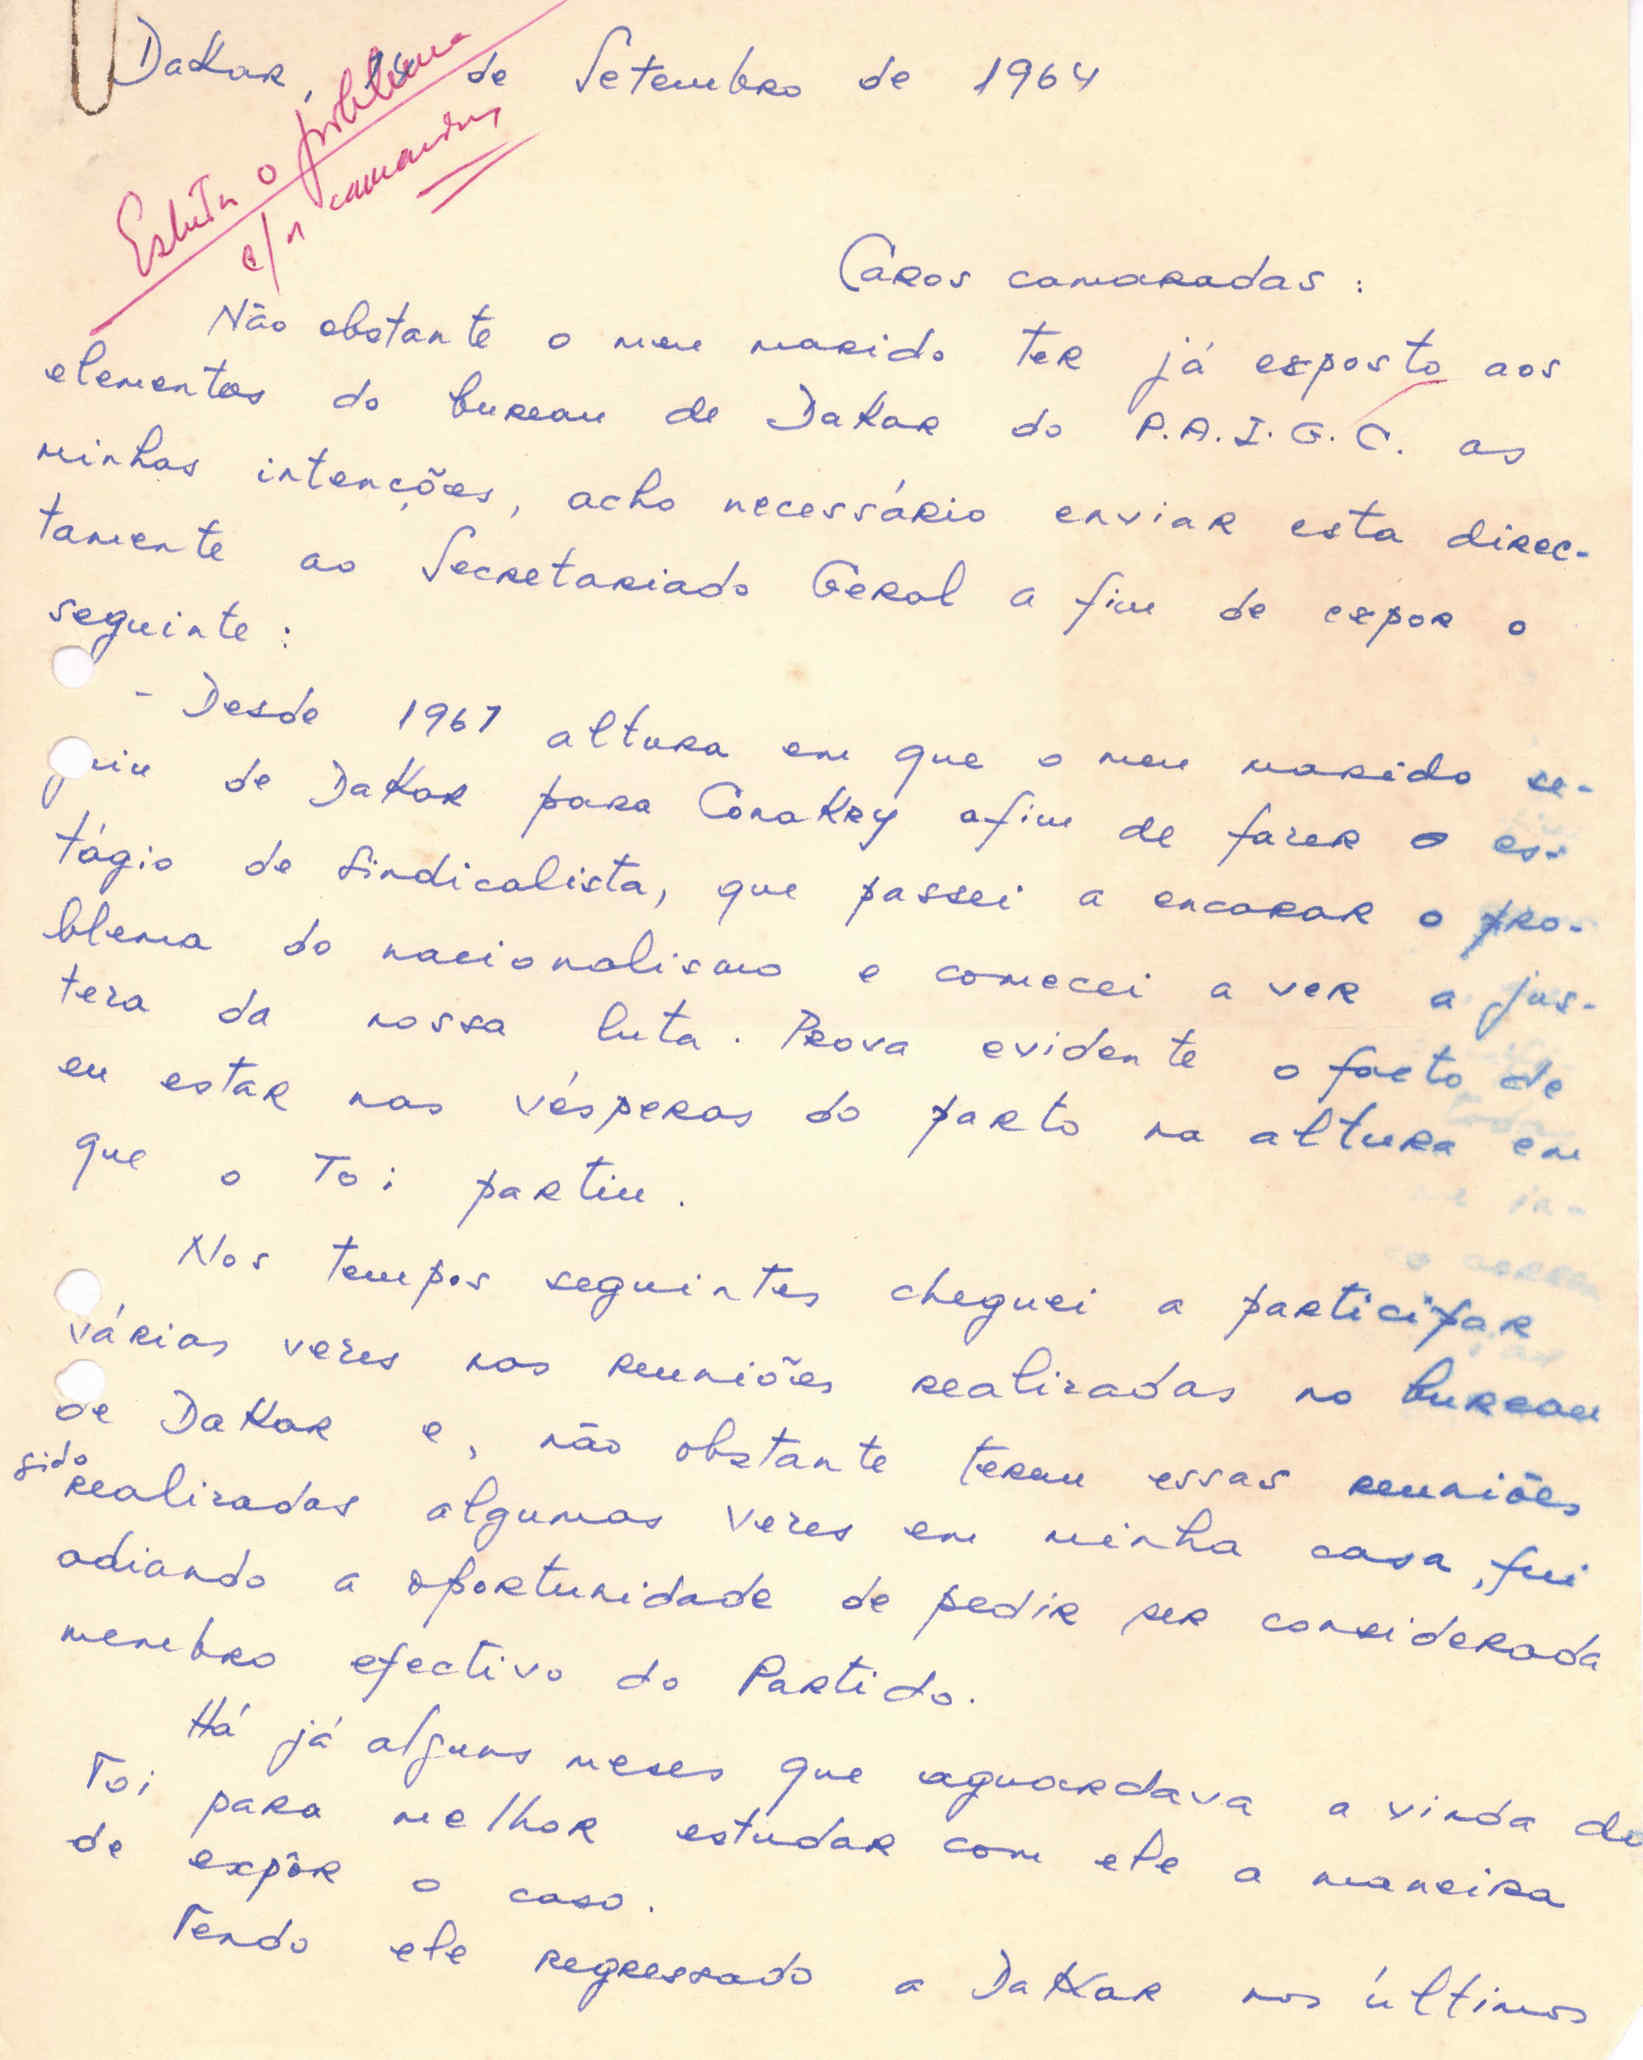 Dakar, de Setembro de 1964
o problema
c/ camaradas
Caros camaradas:
Não obstante o meu marido ter já exposto aos
elementos do bureau de Dakar do P.A.I.G.C. as
minhas intenções, acho necessário enviar esta direc-
tamente ao Secretariado Geral a fim de expor o
seguinte:
- Desde 1961 altura em que o meu marido se-
guiu de Dakar para Conakry afim de fazer o es-
tágio de sindicalista, que passei a encarar o pro-
blema do nacionalismo e comecei a ver a jus-
teza da nossa luta. Prova evidente o facto de
eu estar nas vésperas do parto na altura em
que o Toi partiu.
Nos tempos seguintes cheguei a participar
várias vezes nas reuniões realizadas no bureau
de Dakar e, não obstante terem essas reuniões
sido realizadas algumas vezes em minha casa, fui
adiando a oportunidade de pedir ser considerada
membro efectivo do Partido.
Há já alguns meses que aguardava a vinda do
Toi para melhor estudar com ele a maneira
de expôr o caso.
Tendo ele regressado a Dakar nos últimos